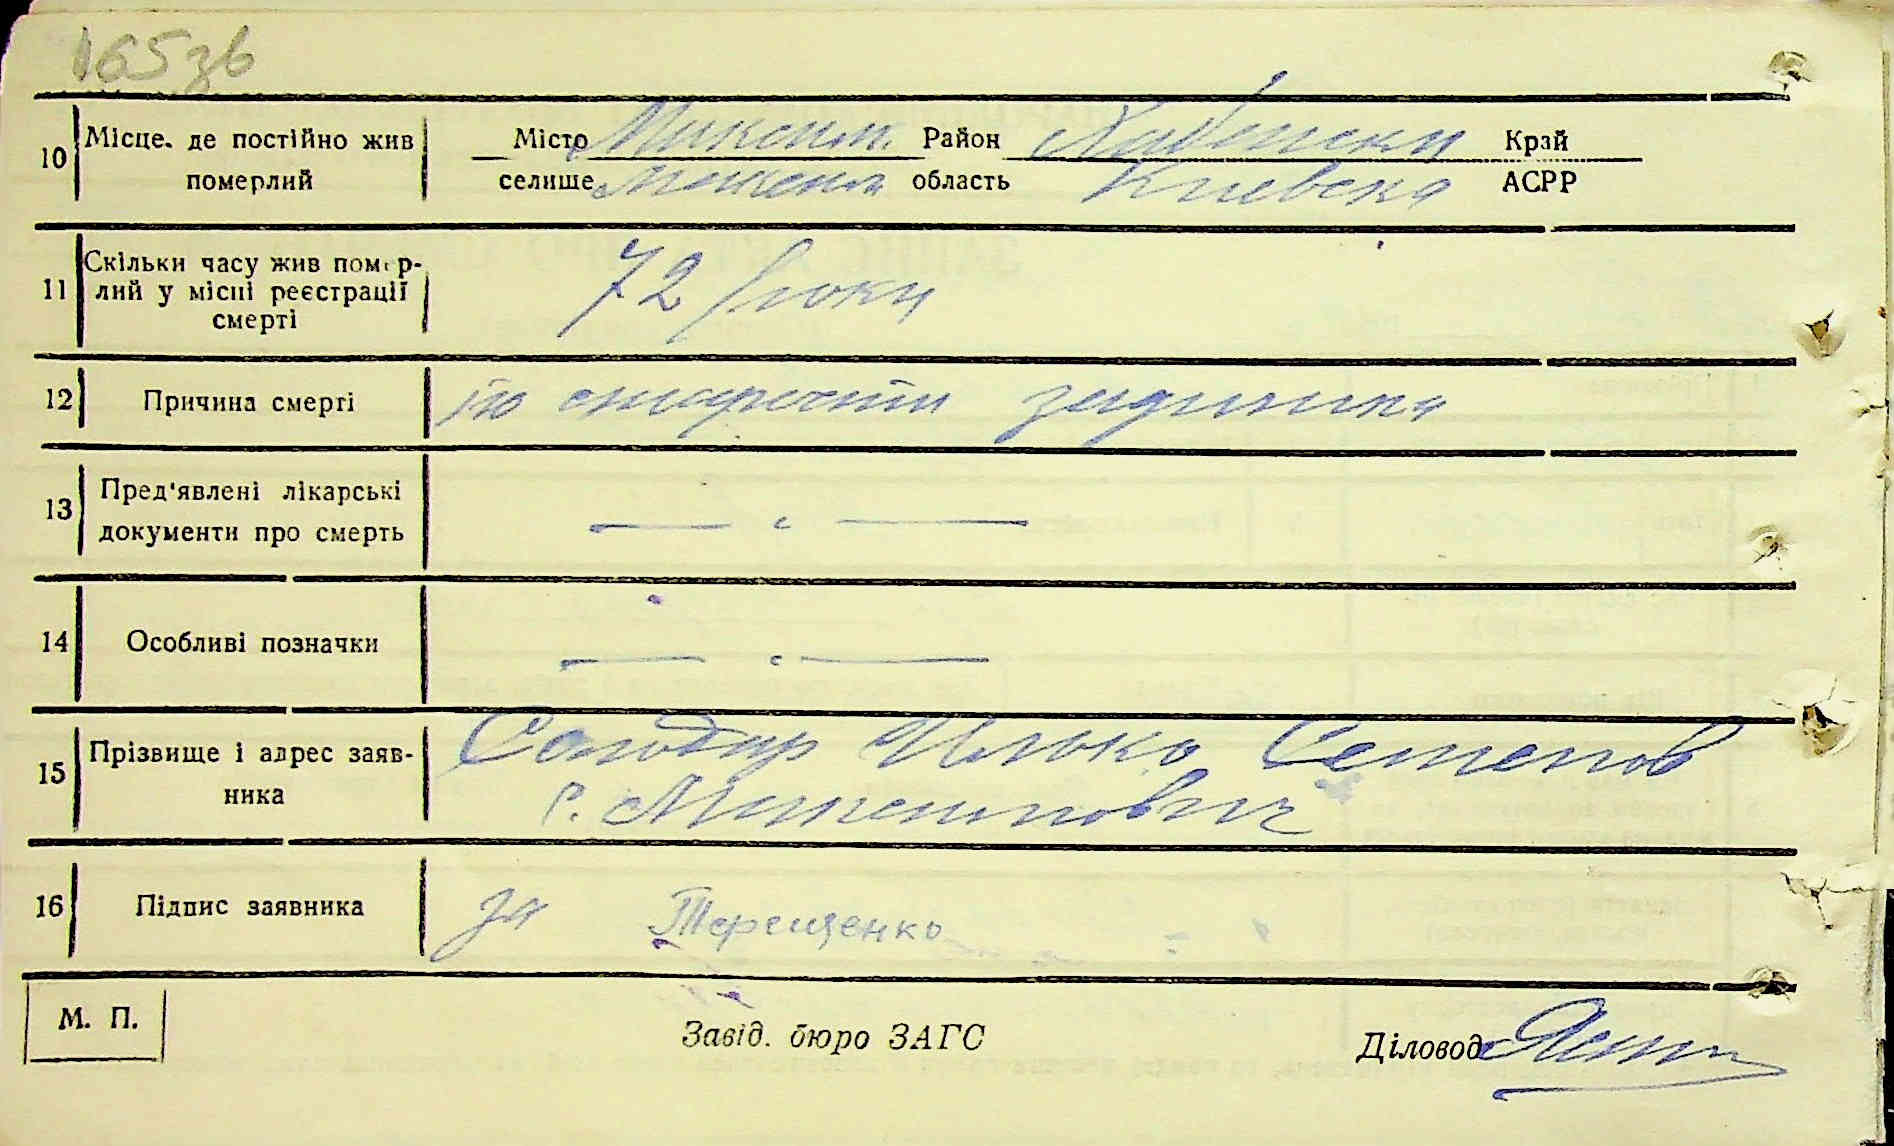 165зв
10 Місце, де постійно жив померлий Місто Район Хабенски Край
селище область Киевска АСРР
11 Скільки часу жив померлий у місці реєстрації смерті 72 роки
12 Причина смерті по старости
13 Пред'явлені лікарські документи про смерть — " —
14 Особливі позначки — " —
15 Прізвище і адрес заявника Солодар Илько Семенов
с.
16 Підпис заявника за Терещенко
М. П. Завід. бюро ЗАГС Діловод